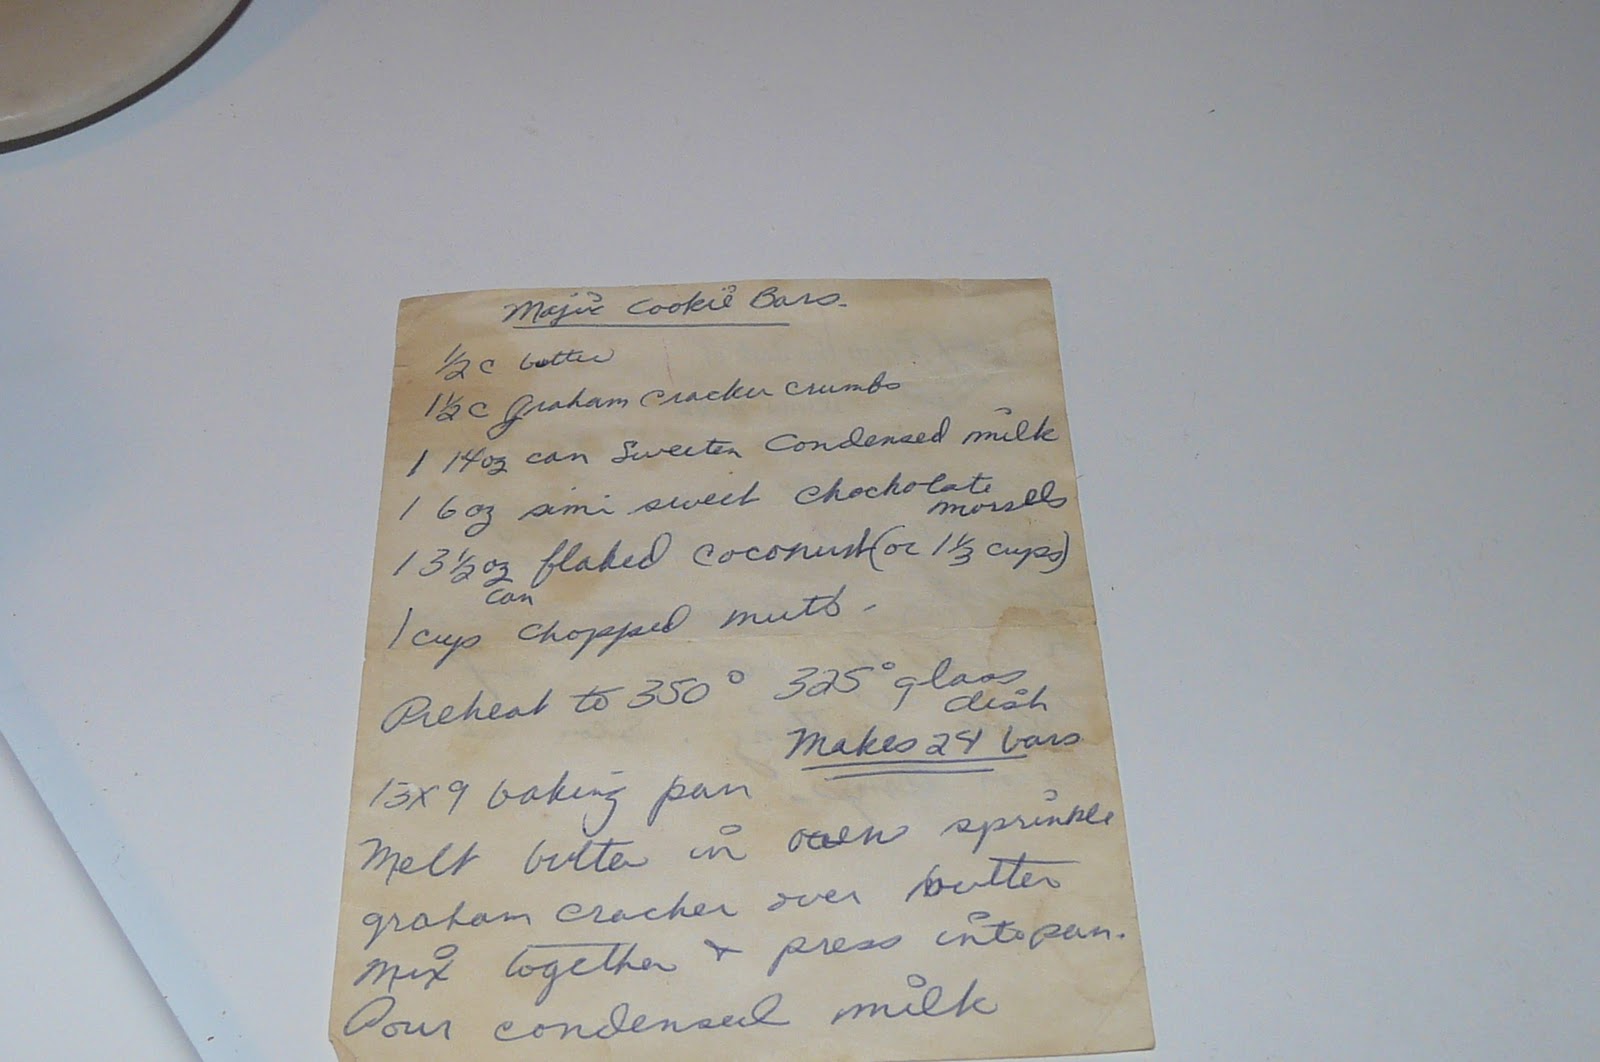 Majic Cookie Bars.
1/2 c butter
1 1/2 c graham cracker crumbs
1 14 oz can Sweeten Condensed milk
1 6 oz simi sweet chocholate
morsels
1 3 1/2 oz flaked coconut (or 1 1/3 cups)
can
1 cup chopped nuts.
Preheat to 350° 325° glass
dish
Makes 24 bars
13x9 baking pan
Melt butter in oven sprinkle
graham cracker over butter
Mix together & press into pan.
Pour condensed milk